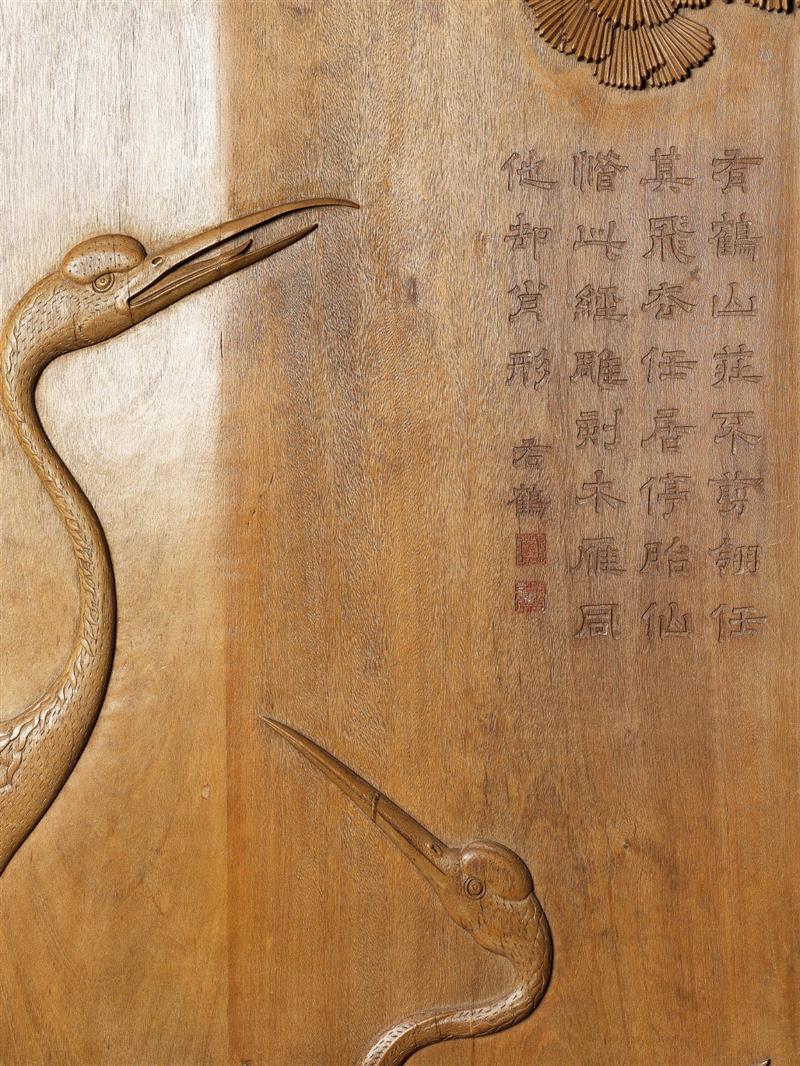 有鶴山莊不剪翎任
其飛去任居停胎仙
惜此經雕剝木雁同
他却肖形 右鶴